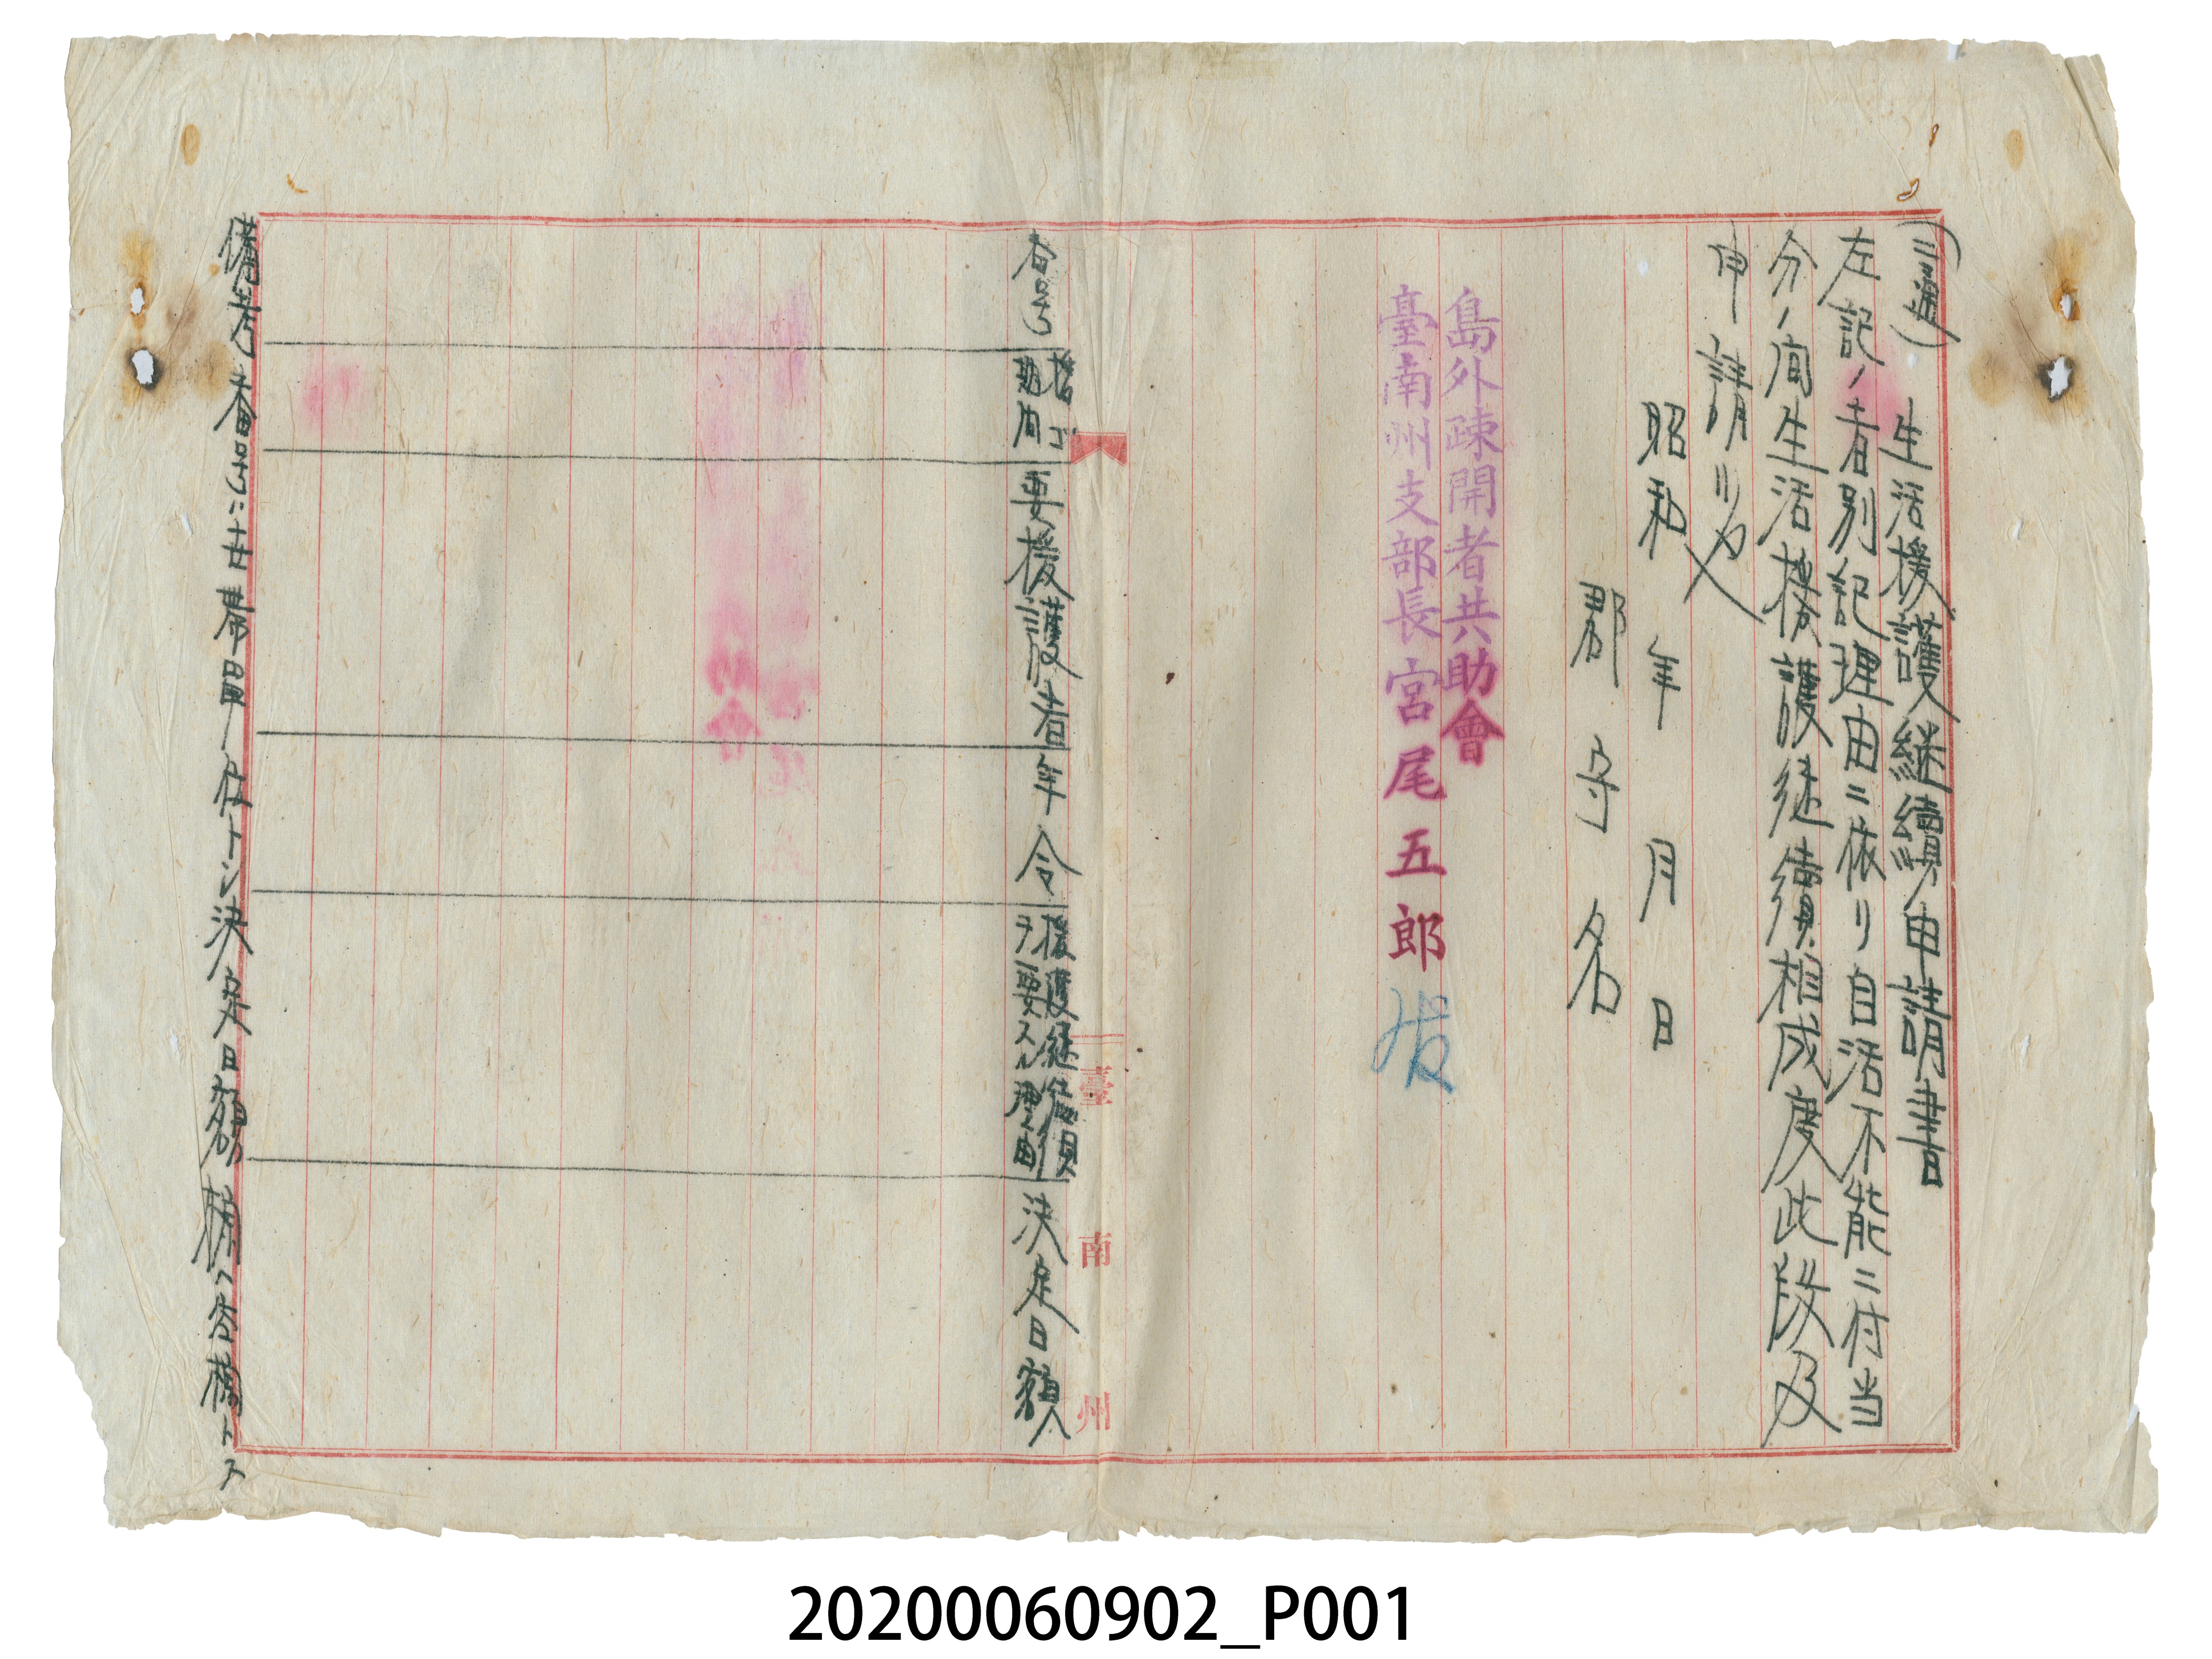 (二通) 生活援護継續申請書
左記ノ者別記理由ニ依リ自活不能ニ付当
分ノ間生活援護継續相成度此段及
申請候也
昭和 年 月 日
郡守名
島外疎開者共助會
臺南州支部長宮尾五郎 殿
臺南州
番号
期間
要援護者
年令
援護継續
ヲ要スル理由
決定日額
備考 番号ハ廿帯單位トシ決定日額欄ハ空欄トス
20200060902_P001